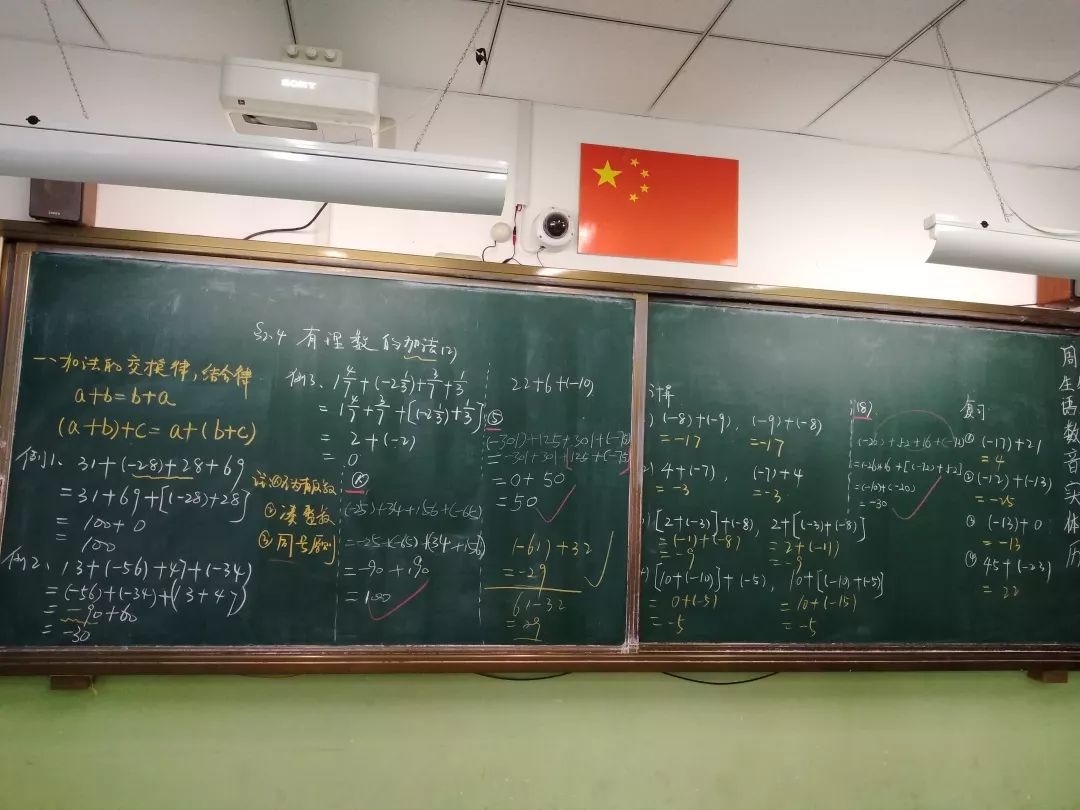 SONY
§2.4 有理数的加法(2)
一、加法的交换律,结合律
a+b=b+a
(a+b)+c=a+(b+c)
例1、31+(-28)+28+69
=31+69+[(-28)+28]
=100+0
=100
例2、13+(-56)+47+(-34)
=(-56)+(-34)+(13+47)
=-90+60
=-30
②凑整数
③同号原则
例3、1 4/7+(-2 1/3)+3/7+1/3
=1 4/7+3/7+[(-2 1/3)+1/3]
=2+(-2)
=0
(-25)+34+156+(-65)
=-25+(-65)+(34+156)
=-90+190
=100
22+6+(-10)
⑤
(-301)+125+301+(-75)
=-301+301+125+(-75)
=0+50
=50
(-61)+32
=-29
61-32
=29
计算
(-8)+(-9), (-9)+(-8)
=-17 =-17
4+(-7), (-7)+4
=-3 =-3
[2+(-3)]+(-8), 2+[(-3)+(-8)]
=(-1)+(-8) =2+(-11)
=-9 =-9
[10+(-10)]+(-5), 10+[(-10)+(-5)]
=0+(-5) =10+(-15)
=-5 =-5
(8)
=(-10)+(-20)
=-30
复习:
① (-17)+21
=4
② (-12)+(-13)
=-25
③ (-13)+0
=-13
④ 45+(-23)
=22
周
生
语
数
音
实
体
历